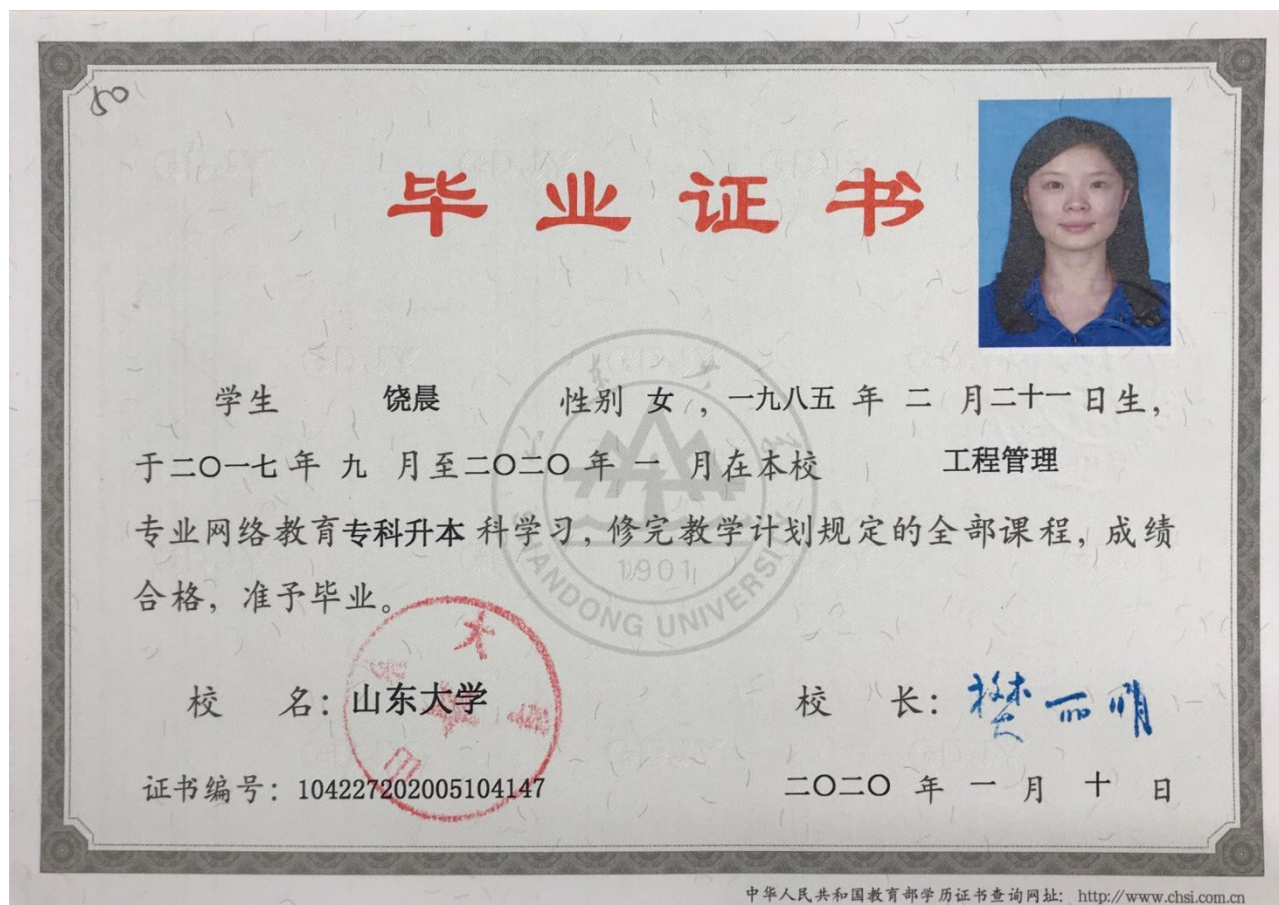 50
毕业证书
学生 饶晨 性别 女 ，一九八五 年 二 月二十一 日生，
于二〇一七年 九 月至二〇二〇 年 一 月在本校 工程管理
专业网络教育专科升本 科学习，修完教学计划规定的全部课程，成绩
合格，准予毕业。
1901
SHANDONG UNIVERSITY
校 名：山东大学 校 长：樊丽明
证书编号：104227202005104147 二〇二〇 年 一 月 十 日
中华人民共和国教育部学历证书查询网址：http://www.chsi.com.cn